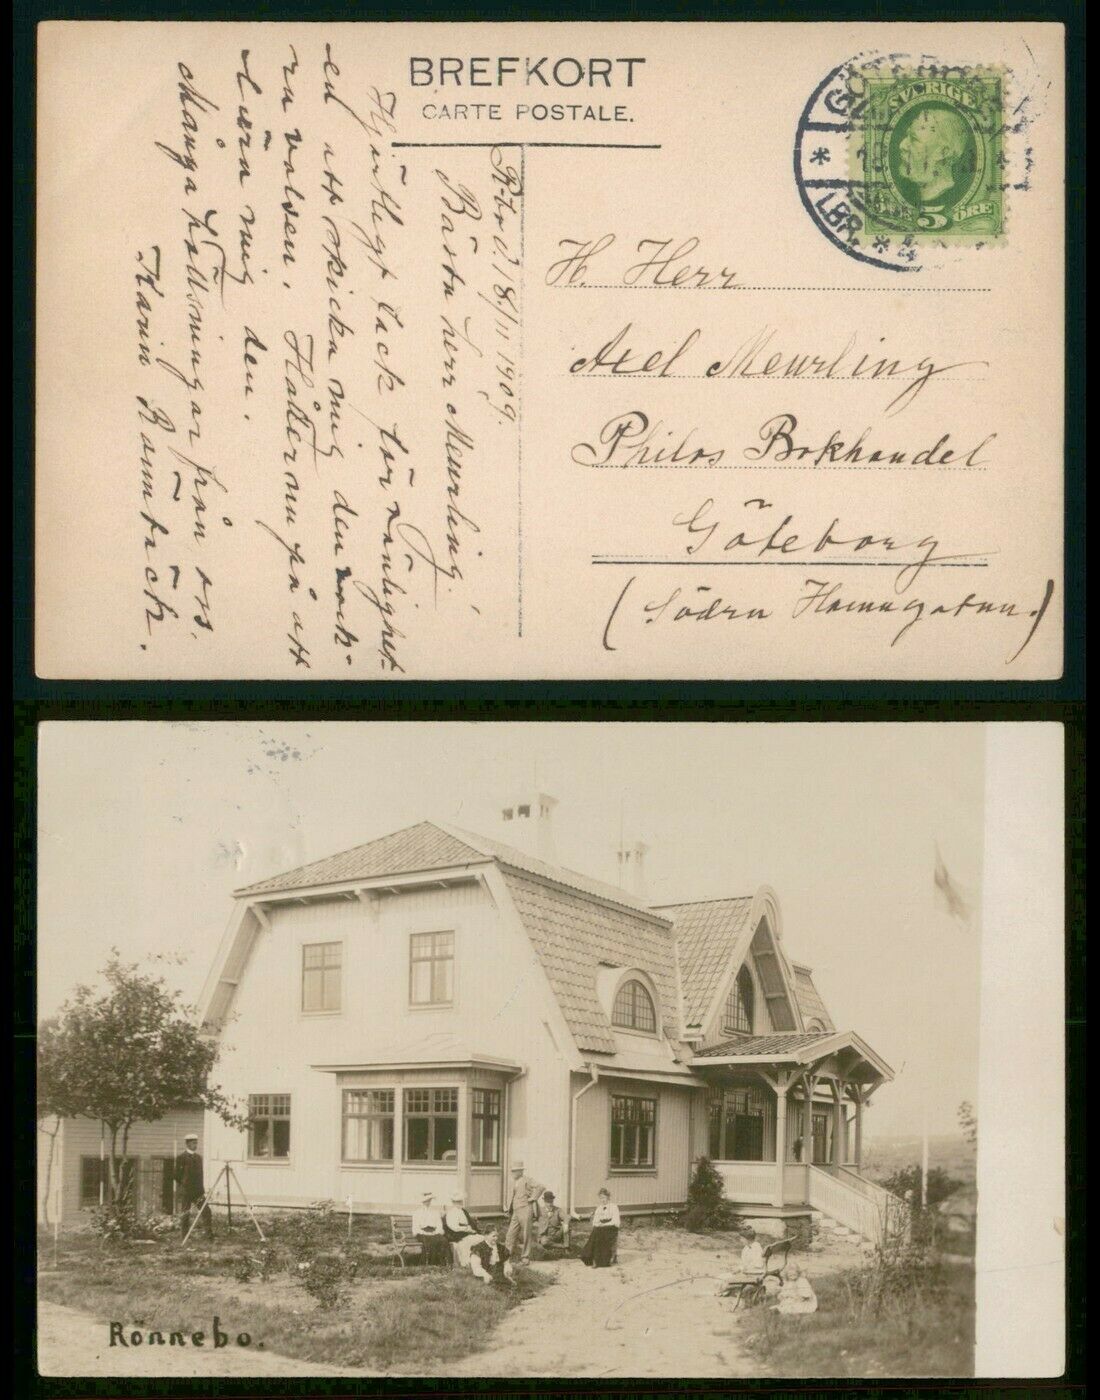 BREFKORT
CARTE POSTALE.
SVERIGE
5
ÖRE
LBR.
18/11 1909.
Bästa herr Meurling!
Hjärtligt tack för vänlighet-
en att skicka mig den vack-
ra valsen. Håller nu på att
lära mig den.
Många hälsningar från oss.
Karin
H. Herr
Axel Meurling
Philos Bokhandel
Göteborg
(Södra Hamngatan.)
Rönnebo.